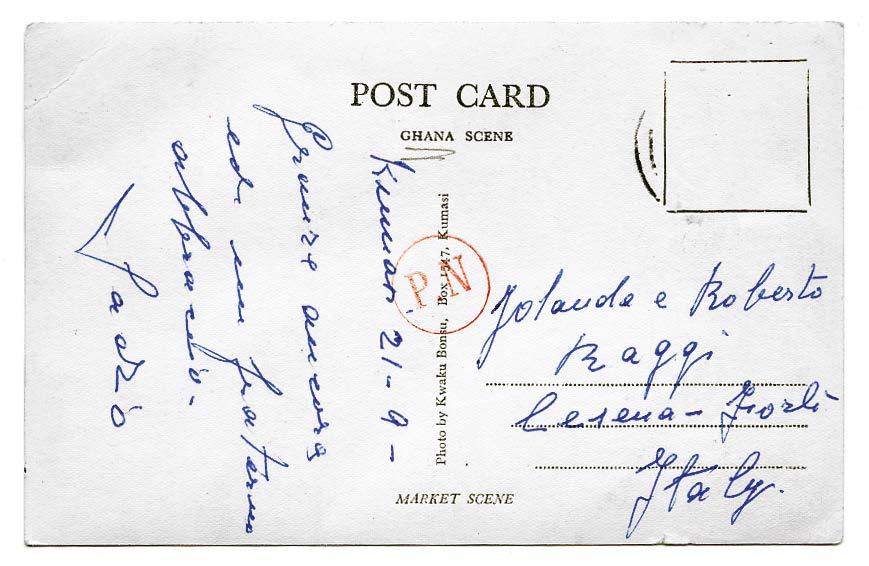 POST CARD
GHANA SCENE
Kumasi 21-9-
Grazie ancora
ed un fraterno
abbraccio-
Photo by Kwaku Bonsu, Box 1547, Kumasi
PN
Jolanda e Roberto
Raggi
Cesena - Forlì
Italy.
MARKET SCENE